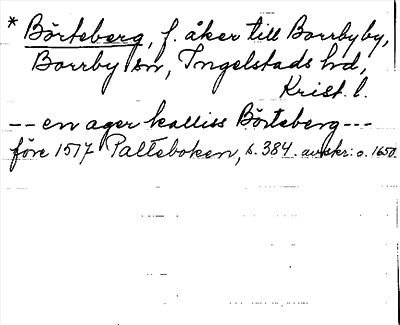 * Börteberg, f. åker till Borrbyby,
Borrby sn, Ingelstads hd,
Krist. l.
-- en ager kalliss Börteberg ---
före 1517 Palteboken, s. 384. avskr: o. 1650.